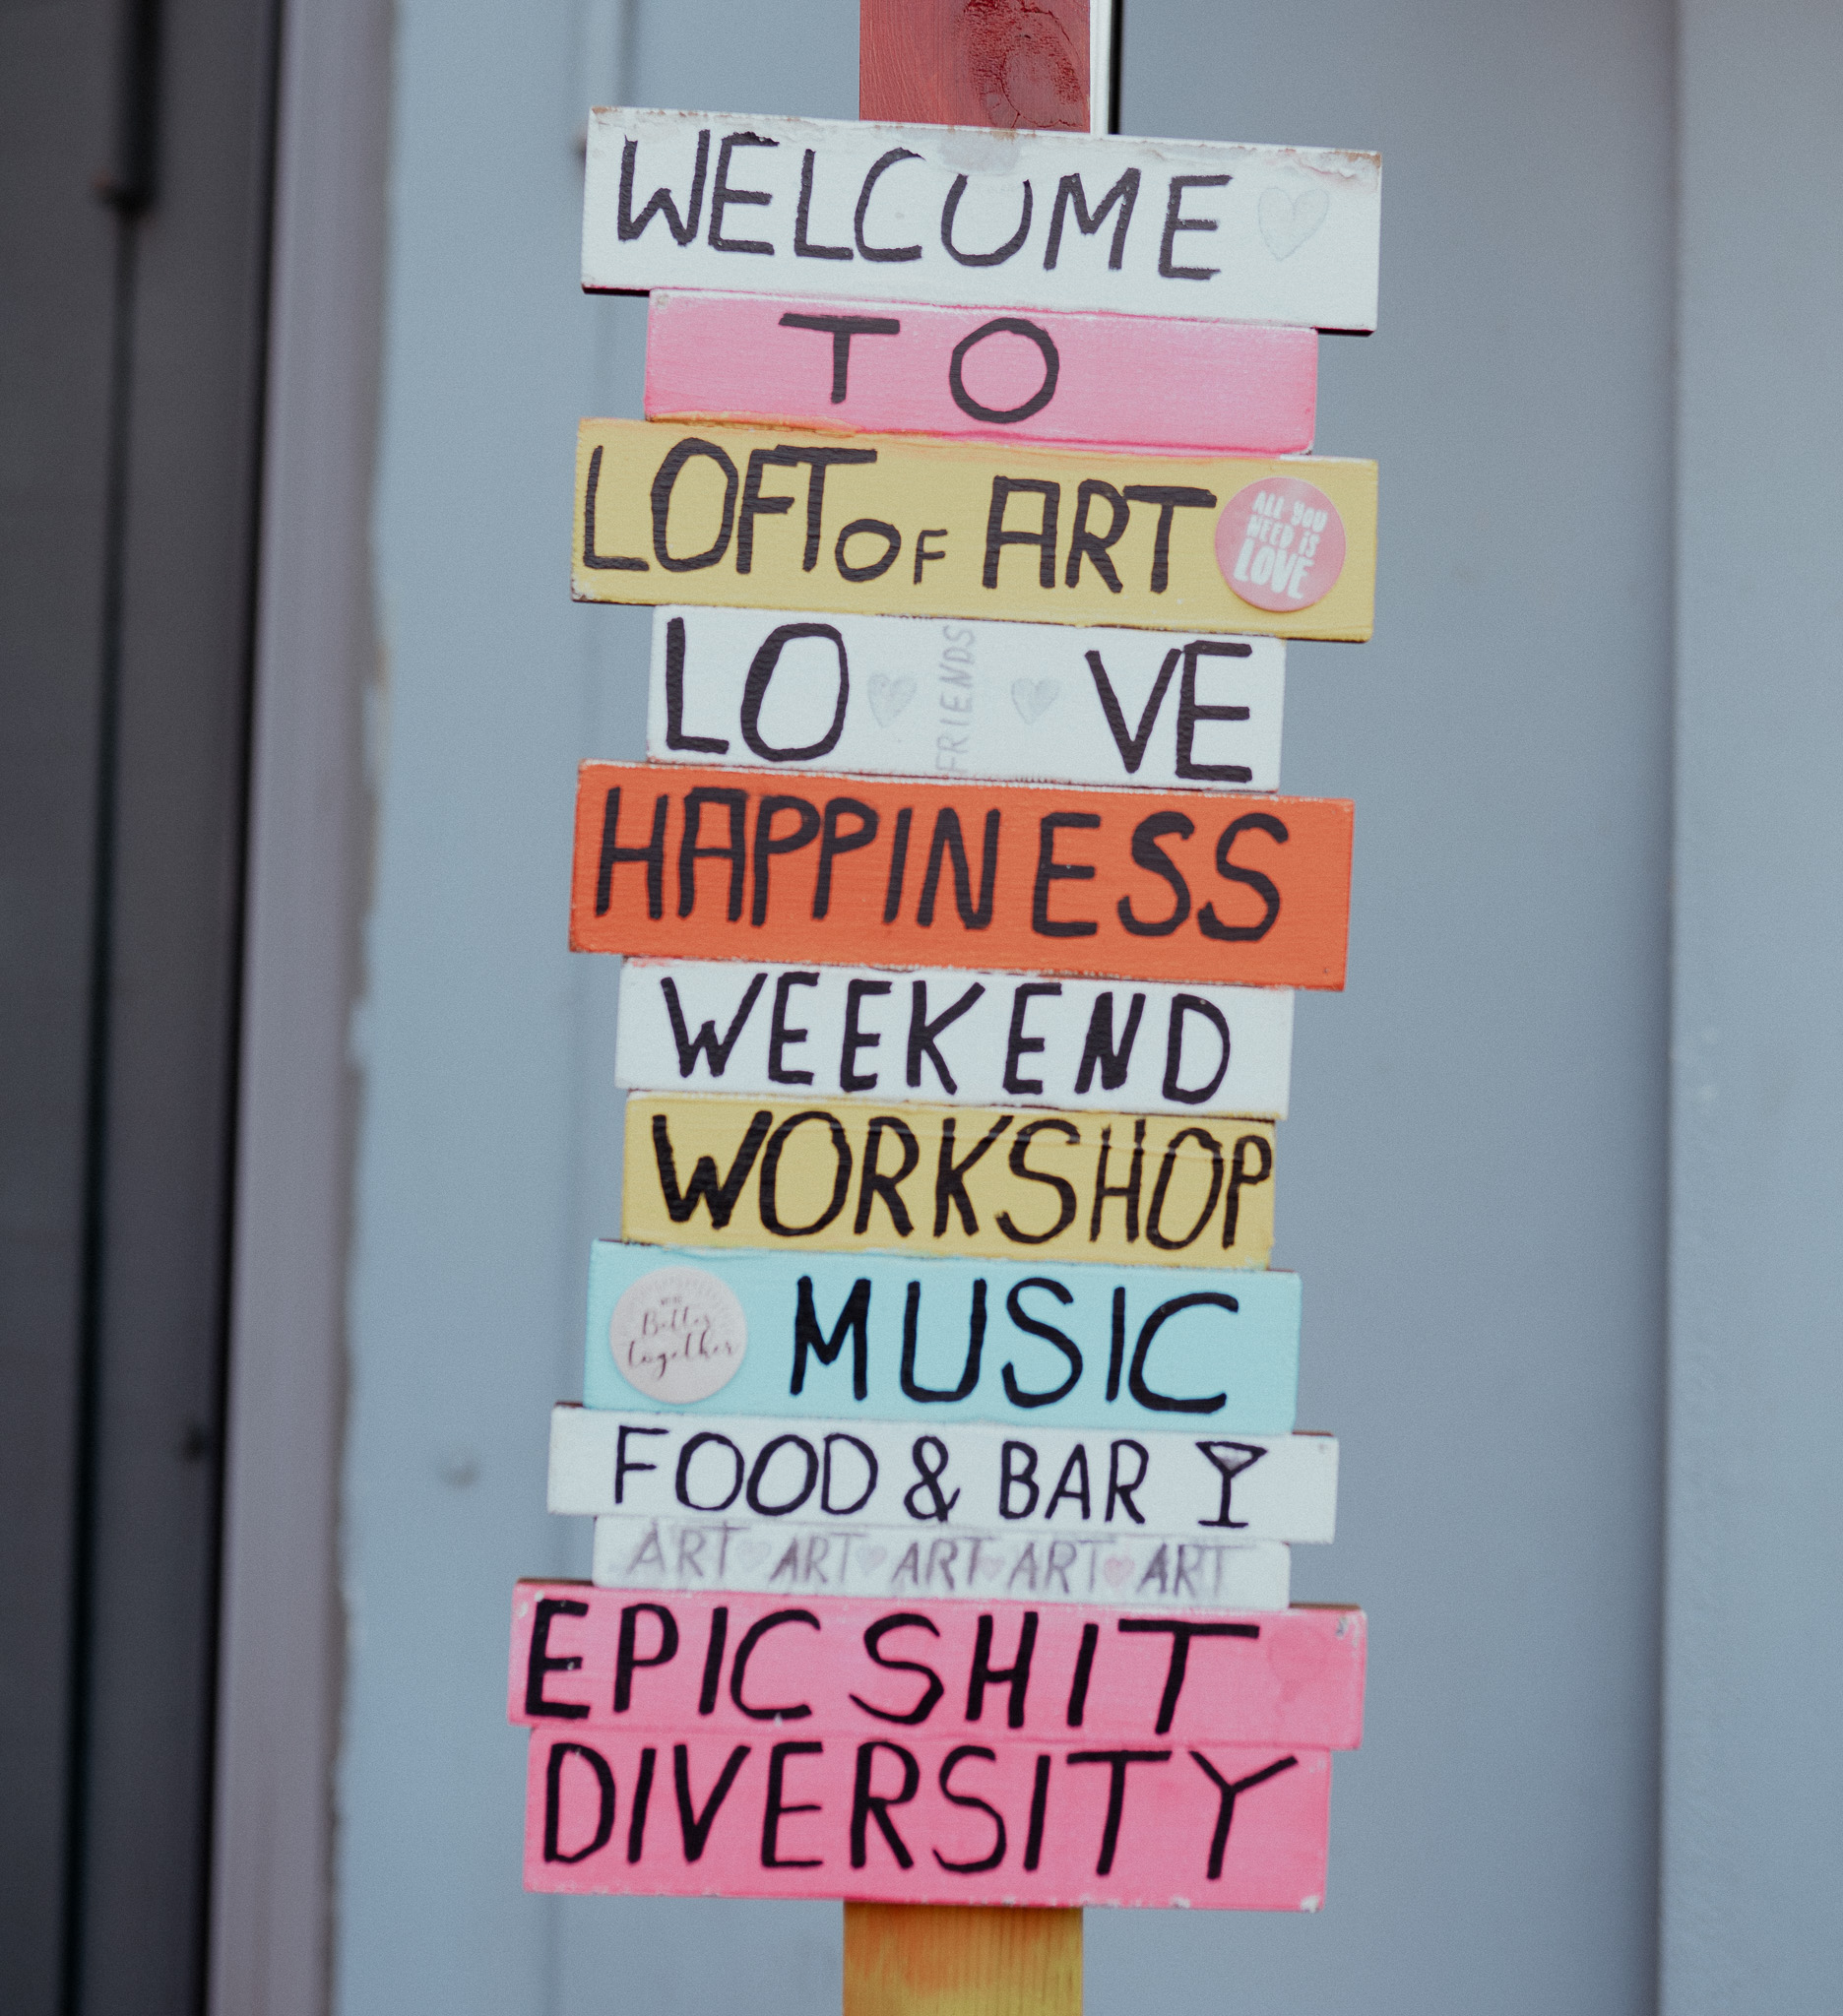 WELCOME
TO
LOFT OF ART
ALL YOU
NEED IS
LOVE
LO VE
FRIENDS
HAPPINESS
WEEKEND
WORKSHOP
MUSIC
Better
together
FOOD & BAR
ART ART ART ART ART
EPIC SHIT
DIVERSITY